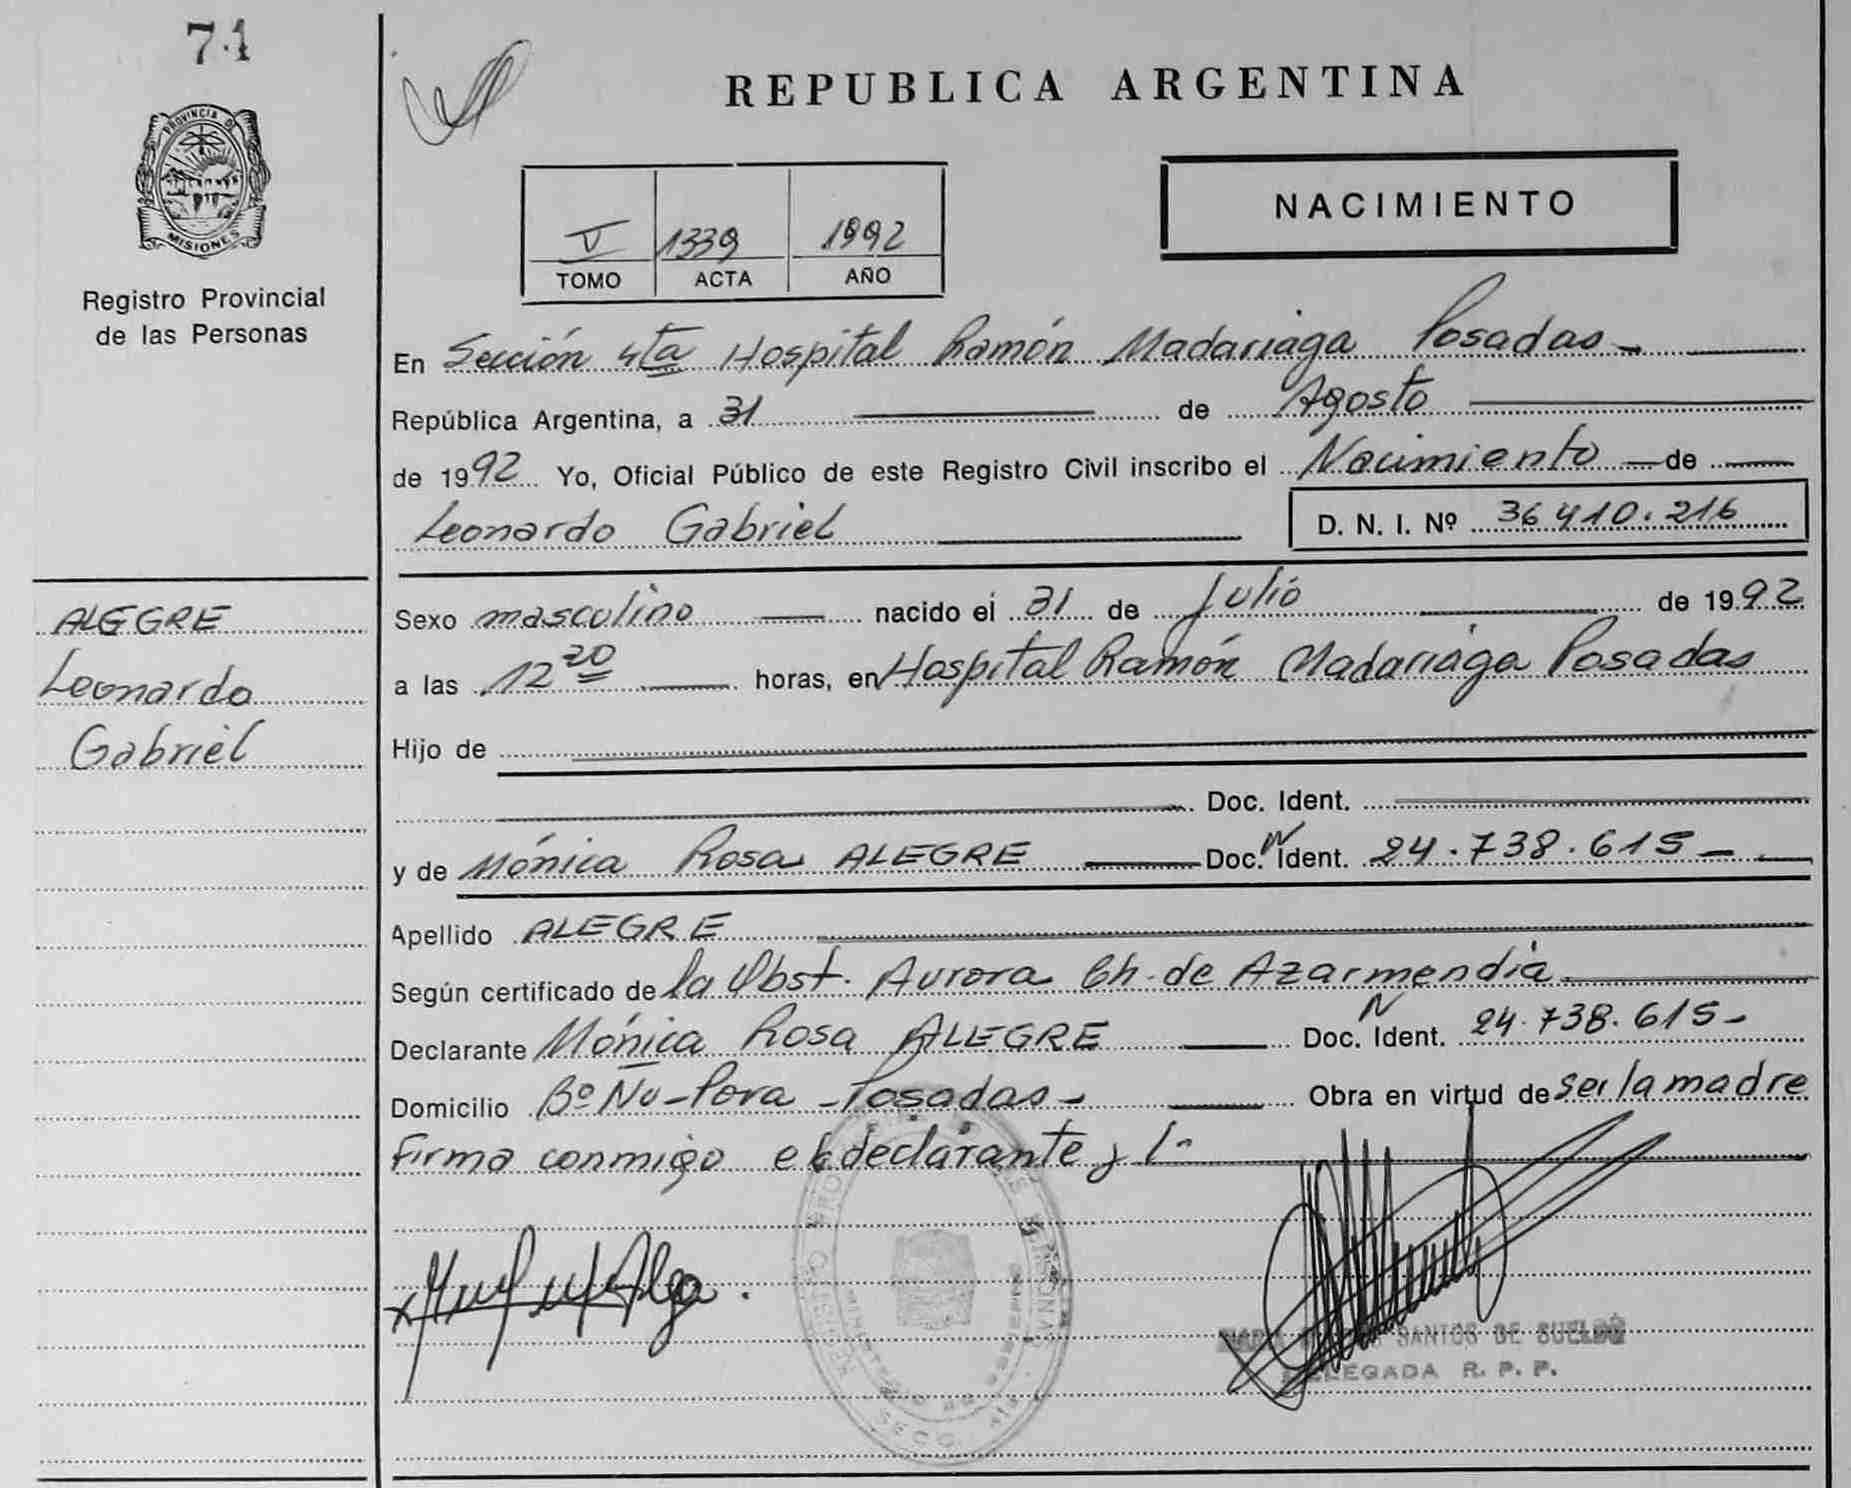 71
PROVINCIA DE
MISIONES
Registro Provincial
de las Personas
REPUBLICA ARGENTINA
V 1339 1992
TOMO ACTA AÑO
NACIMIENTO
En Sección 4ta Hospital Ramón Madariaga Posadas -
República Argentina, a 31 de Agosto
de 1992 Yo, Oficial Público de este Registro Civil inscribo el Nacimiento de
Leonardo Gabriel
D. N. I. Nº 36 410.216
ALEGRE
Leonardo
Gabriel
Sexo masculino nacido el 31 de Julio de 1992
a las 12 20 horas, en Hospital Ramón Madariaga Posadas
Hijo de
Doc. Ident.
y de Mónica Rosa ALEGRE Doc. N Ident. 24.738.615 -
Apellido ALEGRE
Según certificado de la Obst. Aurora Ch. de Azarmendia
Declarante Mónica Rosa ALEGRE Doc. N Ident. 24.738.615 -
Domicilio Bº Ñu-Pora - Posadas - Obra en virtud de ser la madre
Firma conmigo el declarante
SANTOS DE SUELDO
DELEGADA R. P. P.